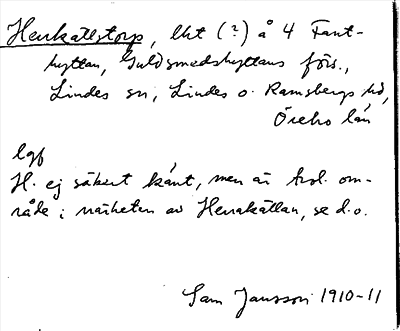 Henkällstorp, lht (?) å 4 Fant-
hyttan, Guldsmedshyttans förs.,
Lindes sn, Lindes o. Ramsbergs hd,
Örebro län
lgf
H. ej säkert känt, men är trol. om-
råde i närheten av Henakällan, se d.o.
Sam Jansson 1910-11